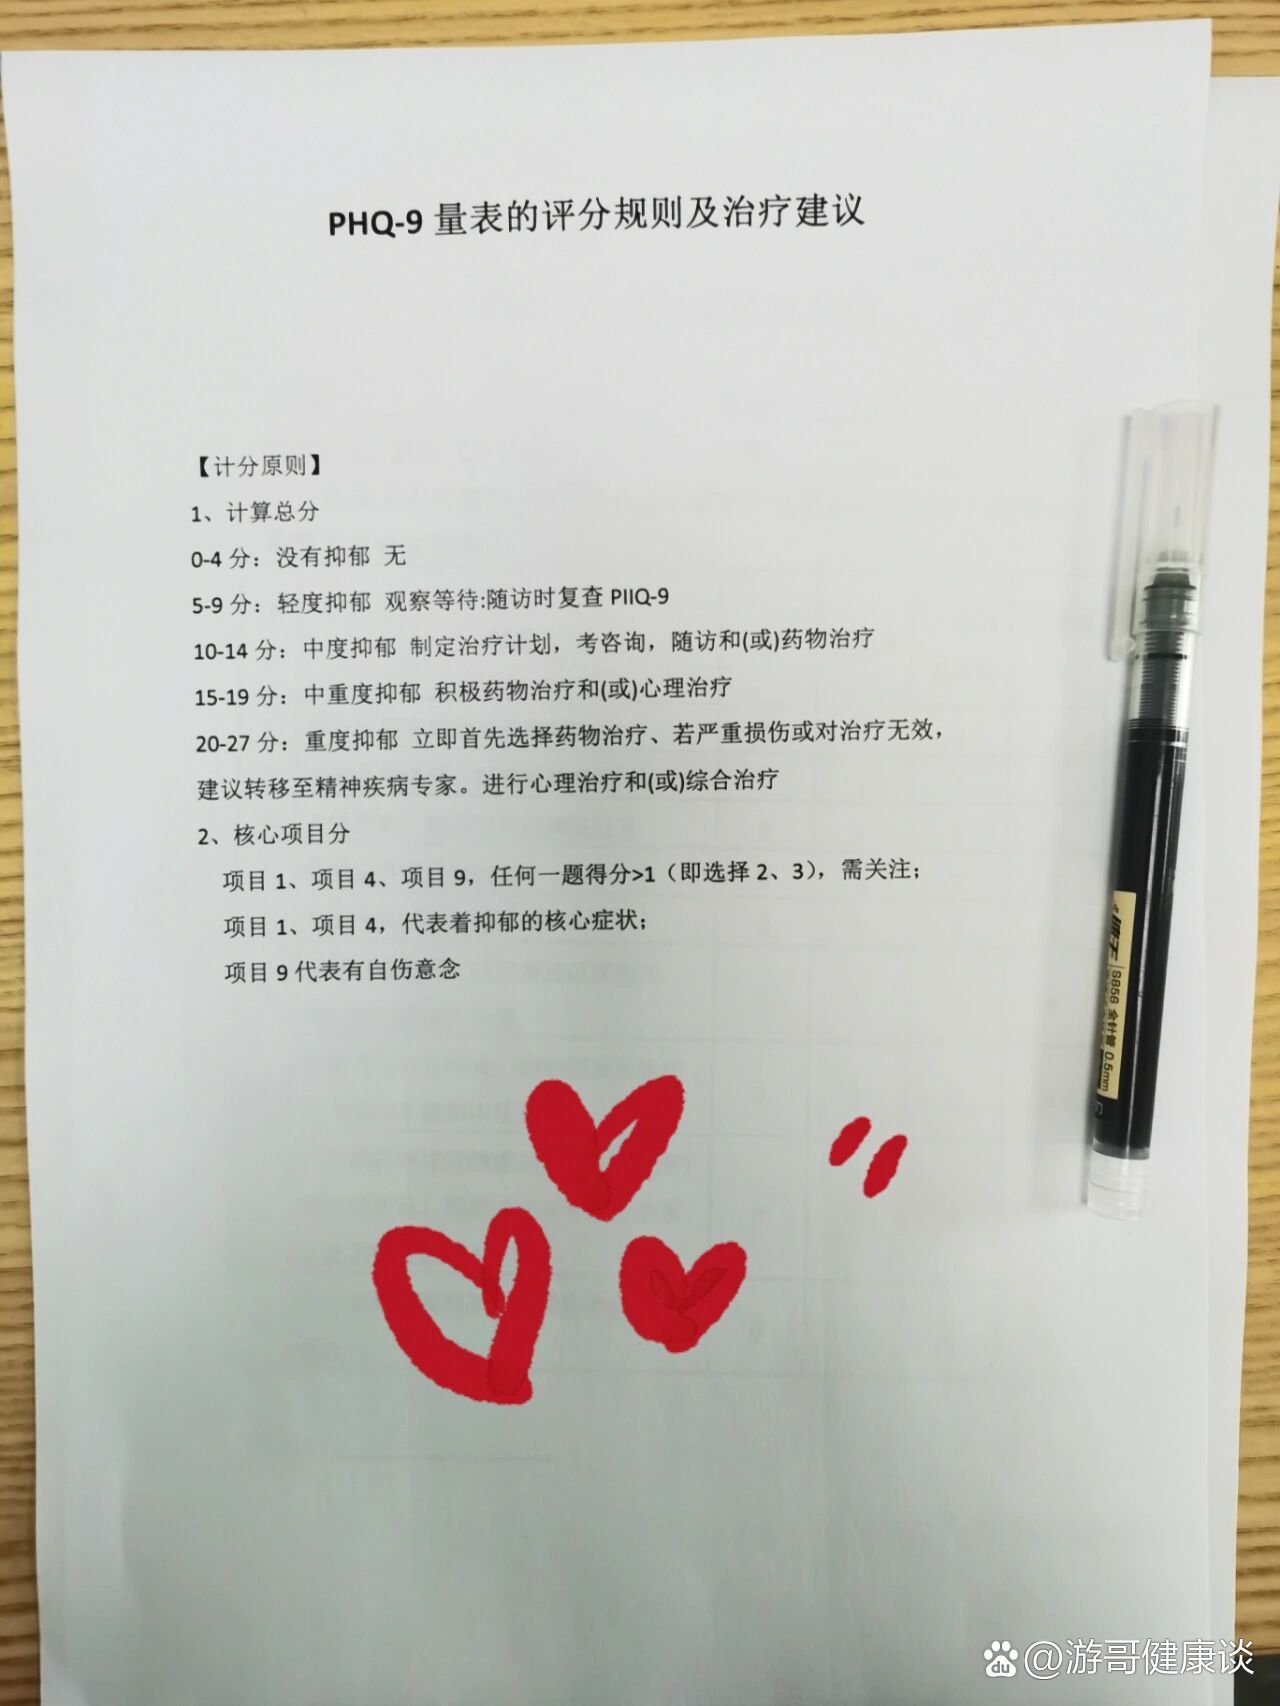 PHQ-9 量表的评分规则及治疗建议
【计分原则】
1、计算总分
0-4 分：没有抑郁 无
5-9 分：轻度抑郁 观察等待:随访时复查 PIIQ-9
10-14 分：中度抑郁 制定治疗计划，考咨询，随访和(或)药物治疗
15-19 分：中重度抑郁 积极药物治疗和(或)心理治疗
20-27 分：重度抑郁 立即首先选择药物治疗、若严重损伤或对治疗无效，
建议转移至精神疾病专家。进行心理治疗和(或)综合治疗
2、核心项目分
项目 1、项目 4、项目 9，任何一题得分>1（即选择 2、3），需关注；
项目 1、项目 4，代表着抑郁的核心症状；
项目 9 代表有自伤意念
S856 全针管 0.5mm
du @游哥健康谈